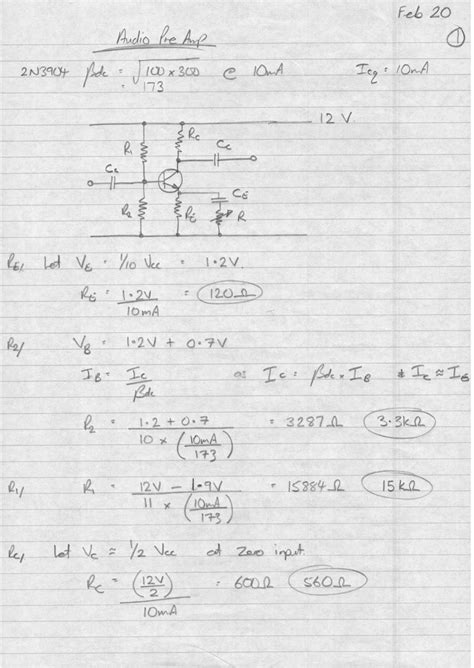 Feb 20
Audio Pre Amp
1
2N3904 βdc = √(100 x 300) @ 10mA Icq = 10mA
= 173
12 V
R1
Rc
Cc
Cc
R2
RE
CE
R
RE/ Let VE = 1/10 Vcc = 1.2V.
RE = 1.2V / 10mA = 120Ω
R2/ VB = 1.2V + 0.7V
IB = Ic / βdc as Ic = βdc x IB & Ic ≈ IE
R2 = (1.2 + 0.7) / (10 x (10mA / 173)) = 3287Ω 3.3kΩ
R1/ R1 = (12V - 1.9V) / (11 x (10mA / 173)) = 15884Ω 15kΩ
Rc/ Let Vc ≈ 1/2 Vcc at zero input.
Rc = (12V / 2) / 10mA = 600Ω 560Ω